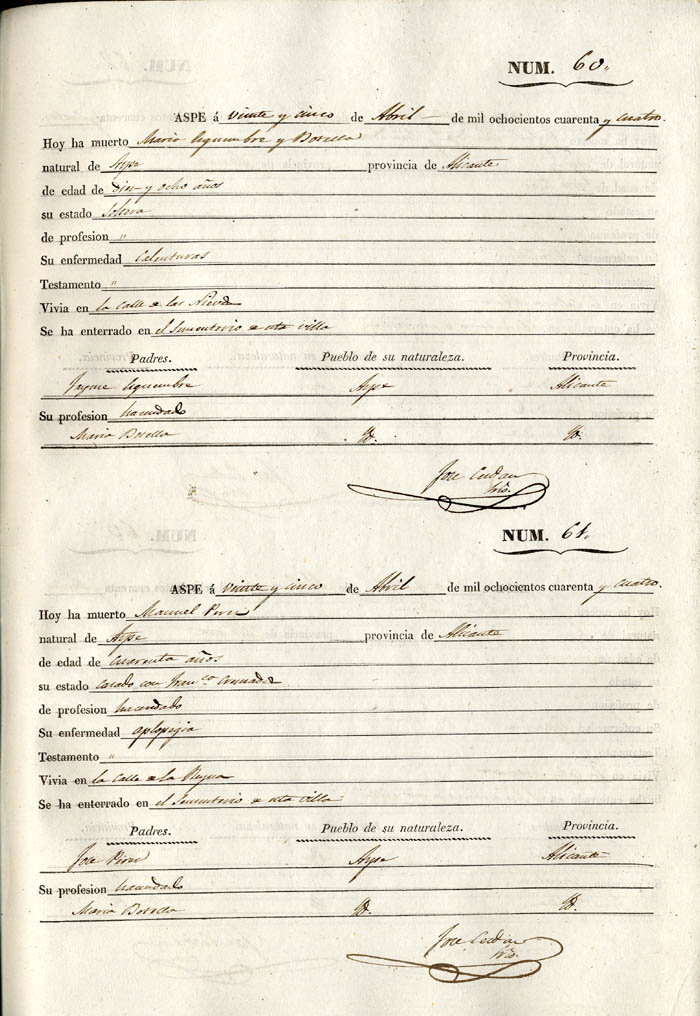 NUM. 60.
ASPE á veinte y cinco de Abril de mil ochocientos cuarenta y cuatro.
Hoy ha muerto Maria y Botella
natural de Aspe provincia de Alicante
de edad de diez y ocho años
su estado soltera
de profesion "
Su enfermedad Calenturas
Testamento "
Vivia en la Calle de las Nieves
Se ha enterrado en el Sementerio de esta villa
Padres. Pueblo de su naturaleza. Provincia.
Jayme Aspe Alicante
Su profesion hacendado
Maria Botella Yd. Yd.
Jose Cerdan
Srio.
NUM. 61.
ASPE á veinte y cinco de Abril de mil ochocientos cuarenta y cuatro.
Hoy ha muerto Manuel Perez
natural de Aspe provincia de Alicante
de edad de cuarenta años
su estado casado con Fran.ca
de profesion hacendado
Su enfermedad aplopegia
Testamento "
Vivia en la Calle de la
Se ha enterrado en el Sementerio de esta villa
Padres. Pueblo de su naturaleza. Provincia.
Jose Perez Aspe Alicante
Su profesion hacendado
Maria Botella Yd. Yd.
Jose Cerdan
Srio.